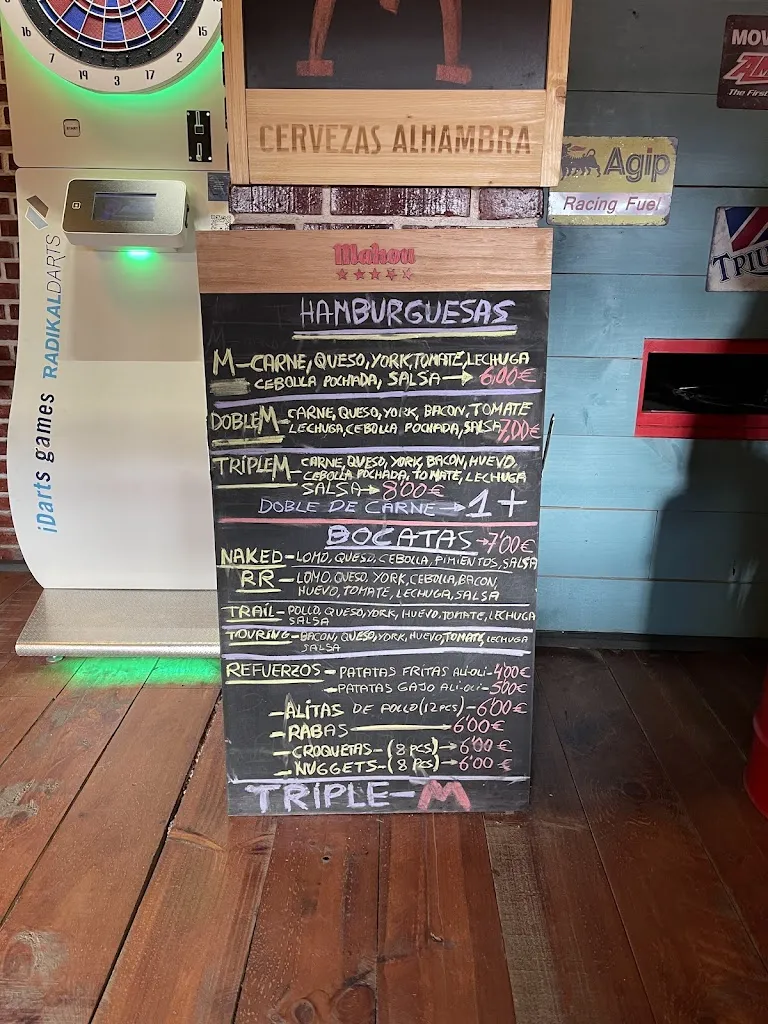 16
7
19
3
17
2
15
START
CERVEZAS ALHAMBRA
MOV
The First
Agip
Racing Fuel
TRIU
iDarts games RADIKALDARTS
Mahou
HAMBURGUESAS
M-CARNE, QUESO, YORK, TOMATE, LECHUGA
CEBOLLA POCHADA, SALSA→ 6,00€
DOBLE M- CARNE, QUESO, YORK, BACON, TOMATE
LECHUGA, CEBOLLA POCHADA, SALSA 7,00€
TRIPLE M- CARNE, QUESO, YORK, BACON, HUEVO,
CEBOLLA POCHADA, TOMATE, LECHUGA
SALSA→ 8'00€
DOBLE DE CARNE→1+
BOCATAS→7'00€
NAKED-LOMO, QUESO, CEBOLLA, PIMIENTOS, SALSA
RR-LOMO, QUESO, YORK, CEBOLLA, BACON,
HUEVO, TOMATE, LECHUGA, SALSA
TRAIL-POLLO, QUESO, YORK, HUEVO, TOMATE, LECHUGA
SALSA
TOURING-BACON, QUESO, YORK, HUEVO, TOMATE, LECHUGA
SALSA
REFUERZOS-PATATAS FRITAS ALI-OLI-4'00€
-PATATAS GAJO ALI-OLI-5'00€
-ALITAS DE POLLO (12 PCS)-6'00€
-RABAS 6'00€
-CROQUETAS-(8 PCS)→6'00€
-NUGGETS-(8 PCS)→6'00€
TRIPLE-M